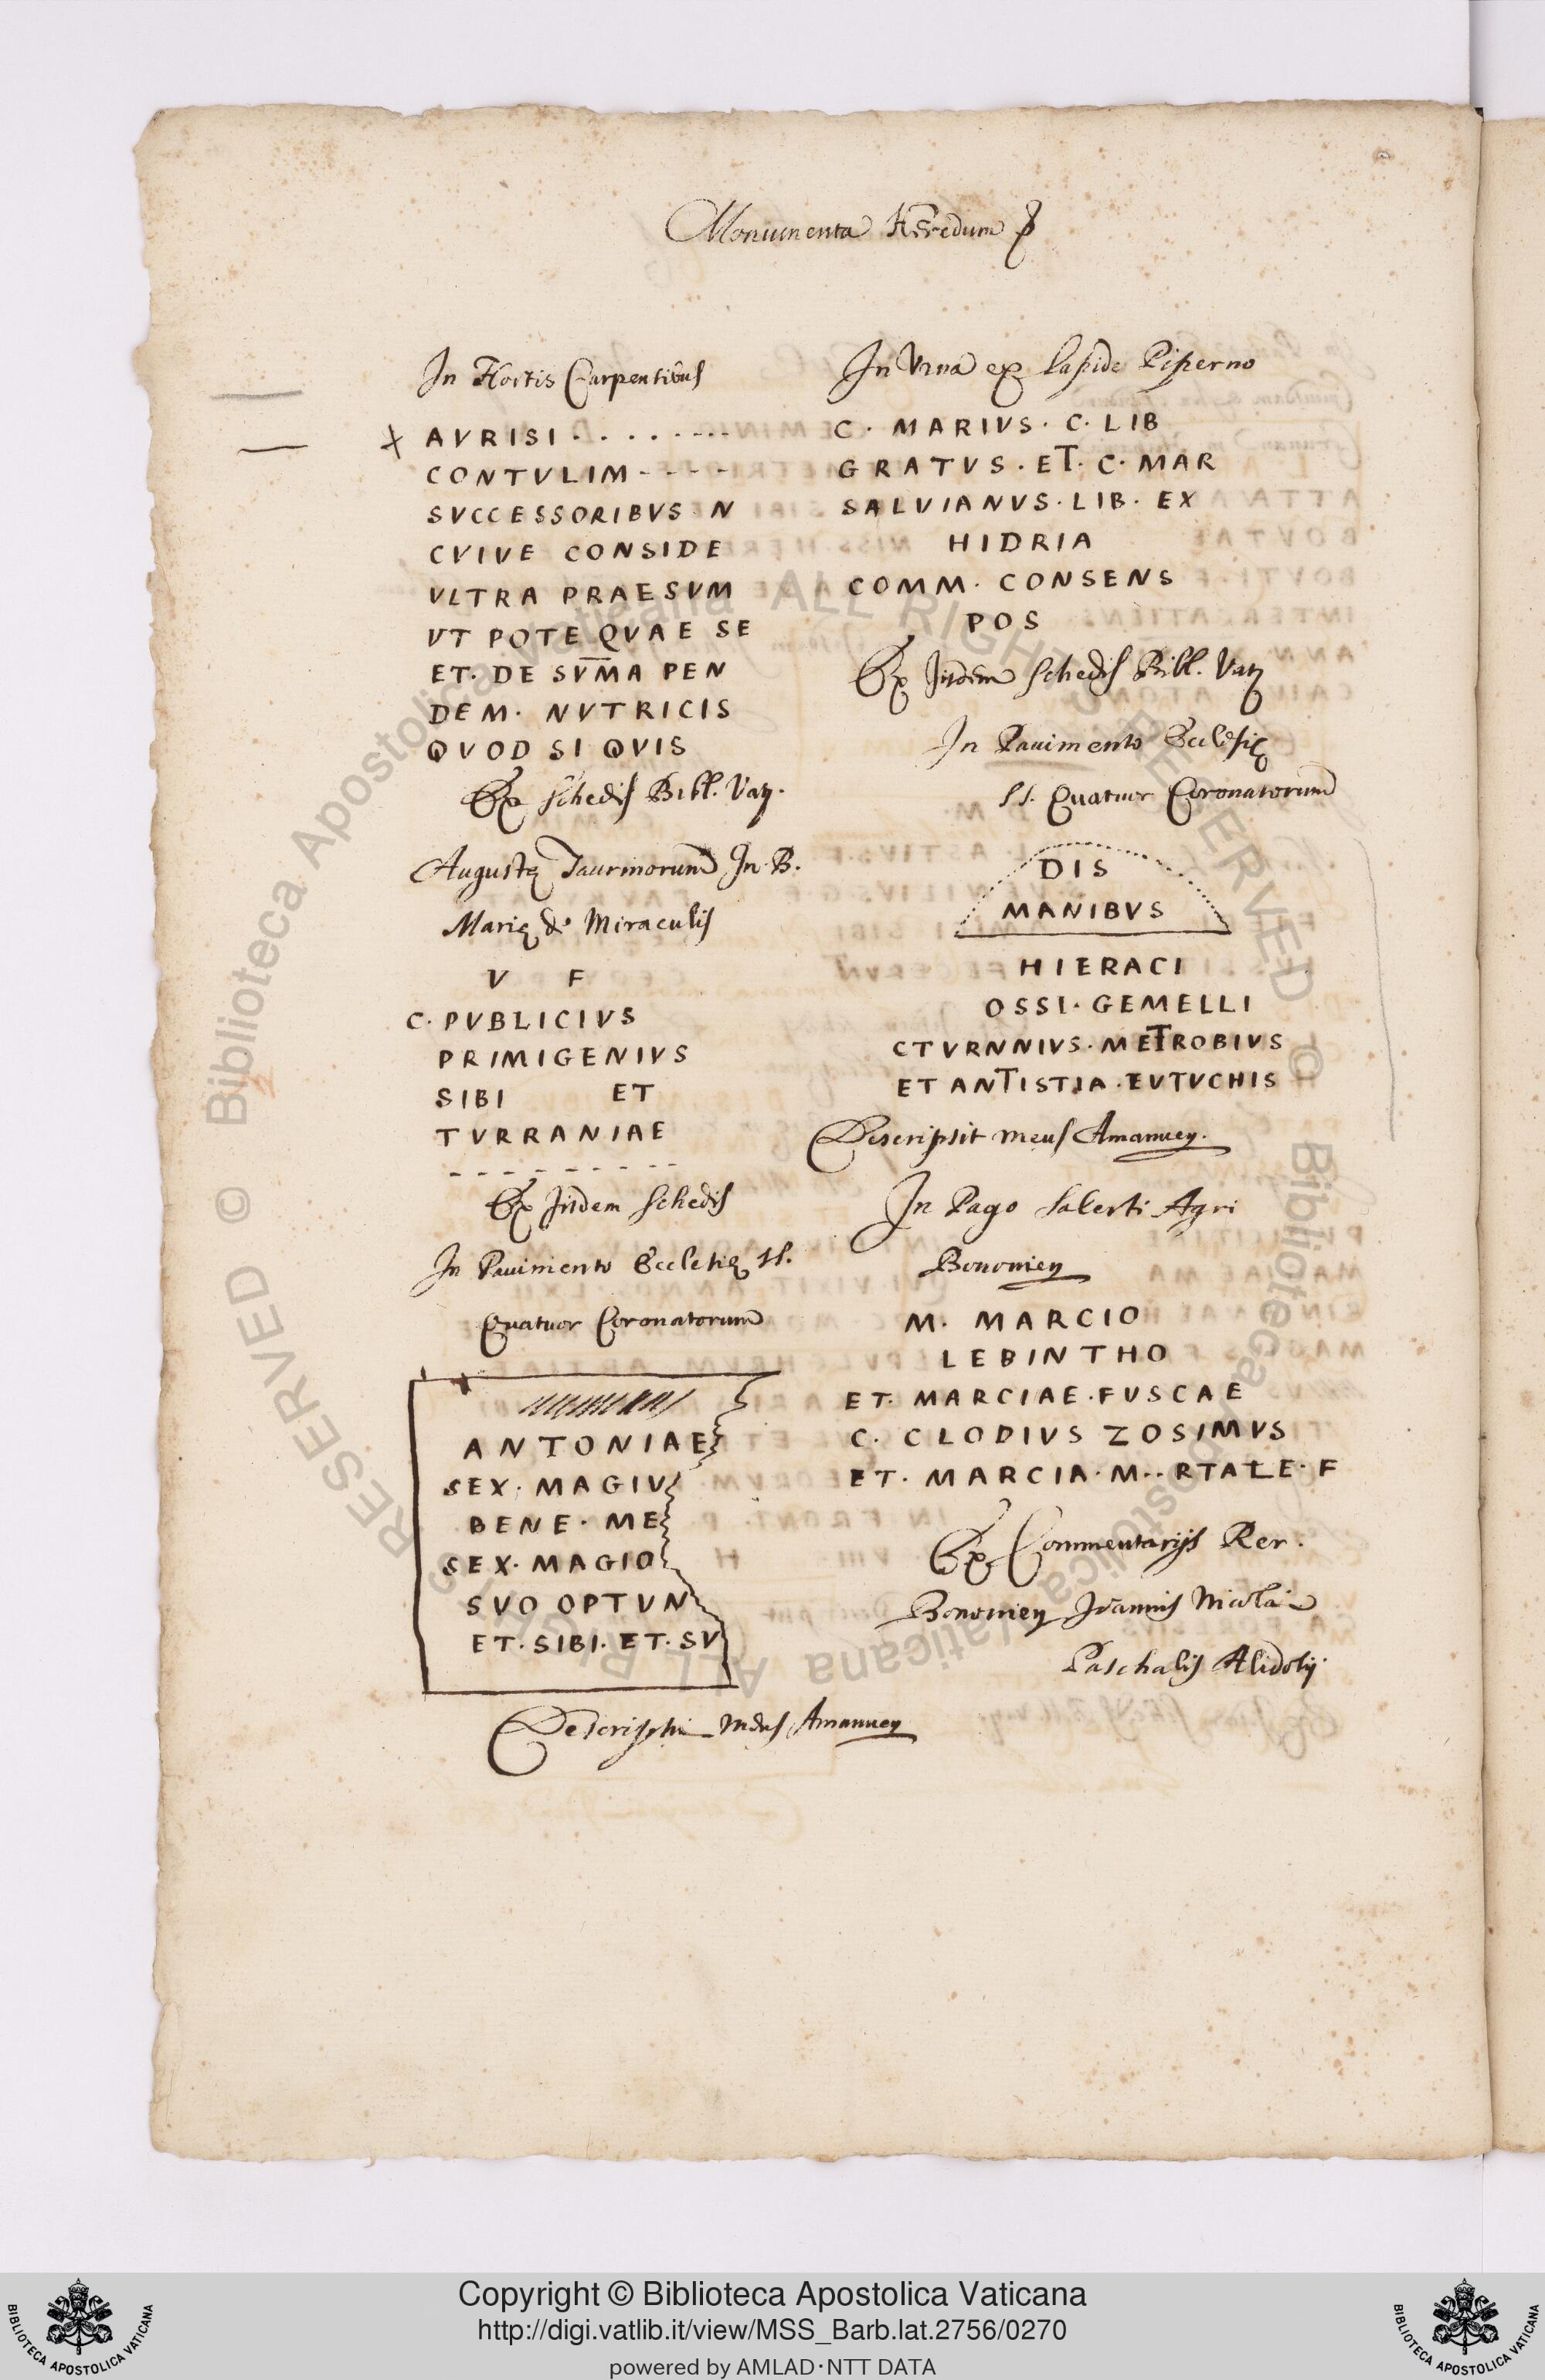 Monumenta Heredum
In Hortis Carpentibus
AVRISI . . . . . . . .
CONTVLIM - - - - -
SVCCESSORIBVS N
CVIVE CONSIDE
VLTRA PRAESVM
VT POTE QVAE SE
ET. DE SVM̅A PEN
DEM. NVTRICIS
QVOD SI QVIS
Ex schedis Bibl. Vat.
Augustę Taurinorum In B.
Marię de Miraculis
V F
C. PVBLICIVS
PRIMIGENIVS
SIBI ET
TVRRANIAE
- - - - - - - - - -
Ex Iisdem schedis
In Pavimento Ecclesię SS.
Quatuor Coronatorum
ANTONIAE
SEX. MAGIV
BENE. ME
SEX. MAGIO
SVO OPTVN
ET. SIBI. ET. SV
Descripsit meus Amanuen
In Vrna ex lapide Piperno
C. MARIVS. C. LIB
GRATVS. ET. C. MAR
SALVIANVS. LIB. EX
HIDRIA
COMM. CONSENS
POS
Ex Iisdem schedis Bibl. Vat
In Pavimento Ecclesię
SS. Quatuor Coronatorum
DIS
MANIBVS
HIERACI
OSSI. GEMELLI
CTVRNNIVS. METROBIVS
ET ANTISTIA. EVTVCHIS
Descripsit meus Amanuen.
In Pago Salerti Agri
Bononien
M. MARCIO
LEBINTHO
ET. MARCIAE. FVSCAE
C. CLODIVS ZOSIMVS
ET. MARCIA. M.. RTALE. F
Ex Commentarijs Rer.
Bononien Ioannis Nicolai
Paschalis Alidosij.
© Biblioteca Apostolica Vaticana ALL RIGHTS RESERVED
© Biblioteca Apostolica Vaticana ALL RIGHTS RESERVED
Copyright © Biblioteca Apostolica Vaticana
http://digi.vatlib.it/view/MSS_Barb.lat.2756/0270
powered by AMLAD·NTT DATA
BIBLIOTECA APOSTOLICA VATICANA
BIBLIOTECA APOSTOLICA VATICANA